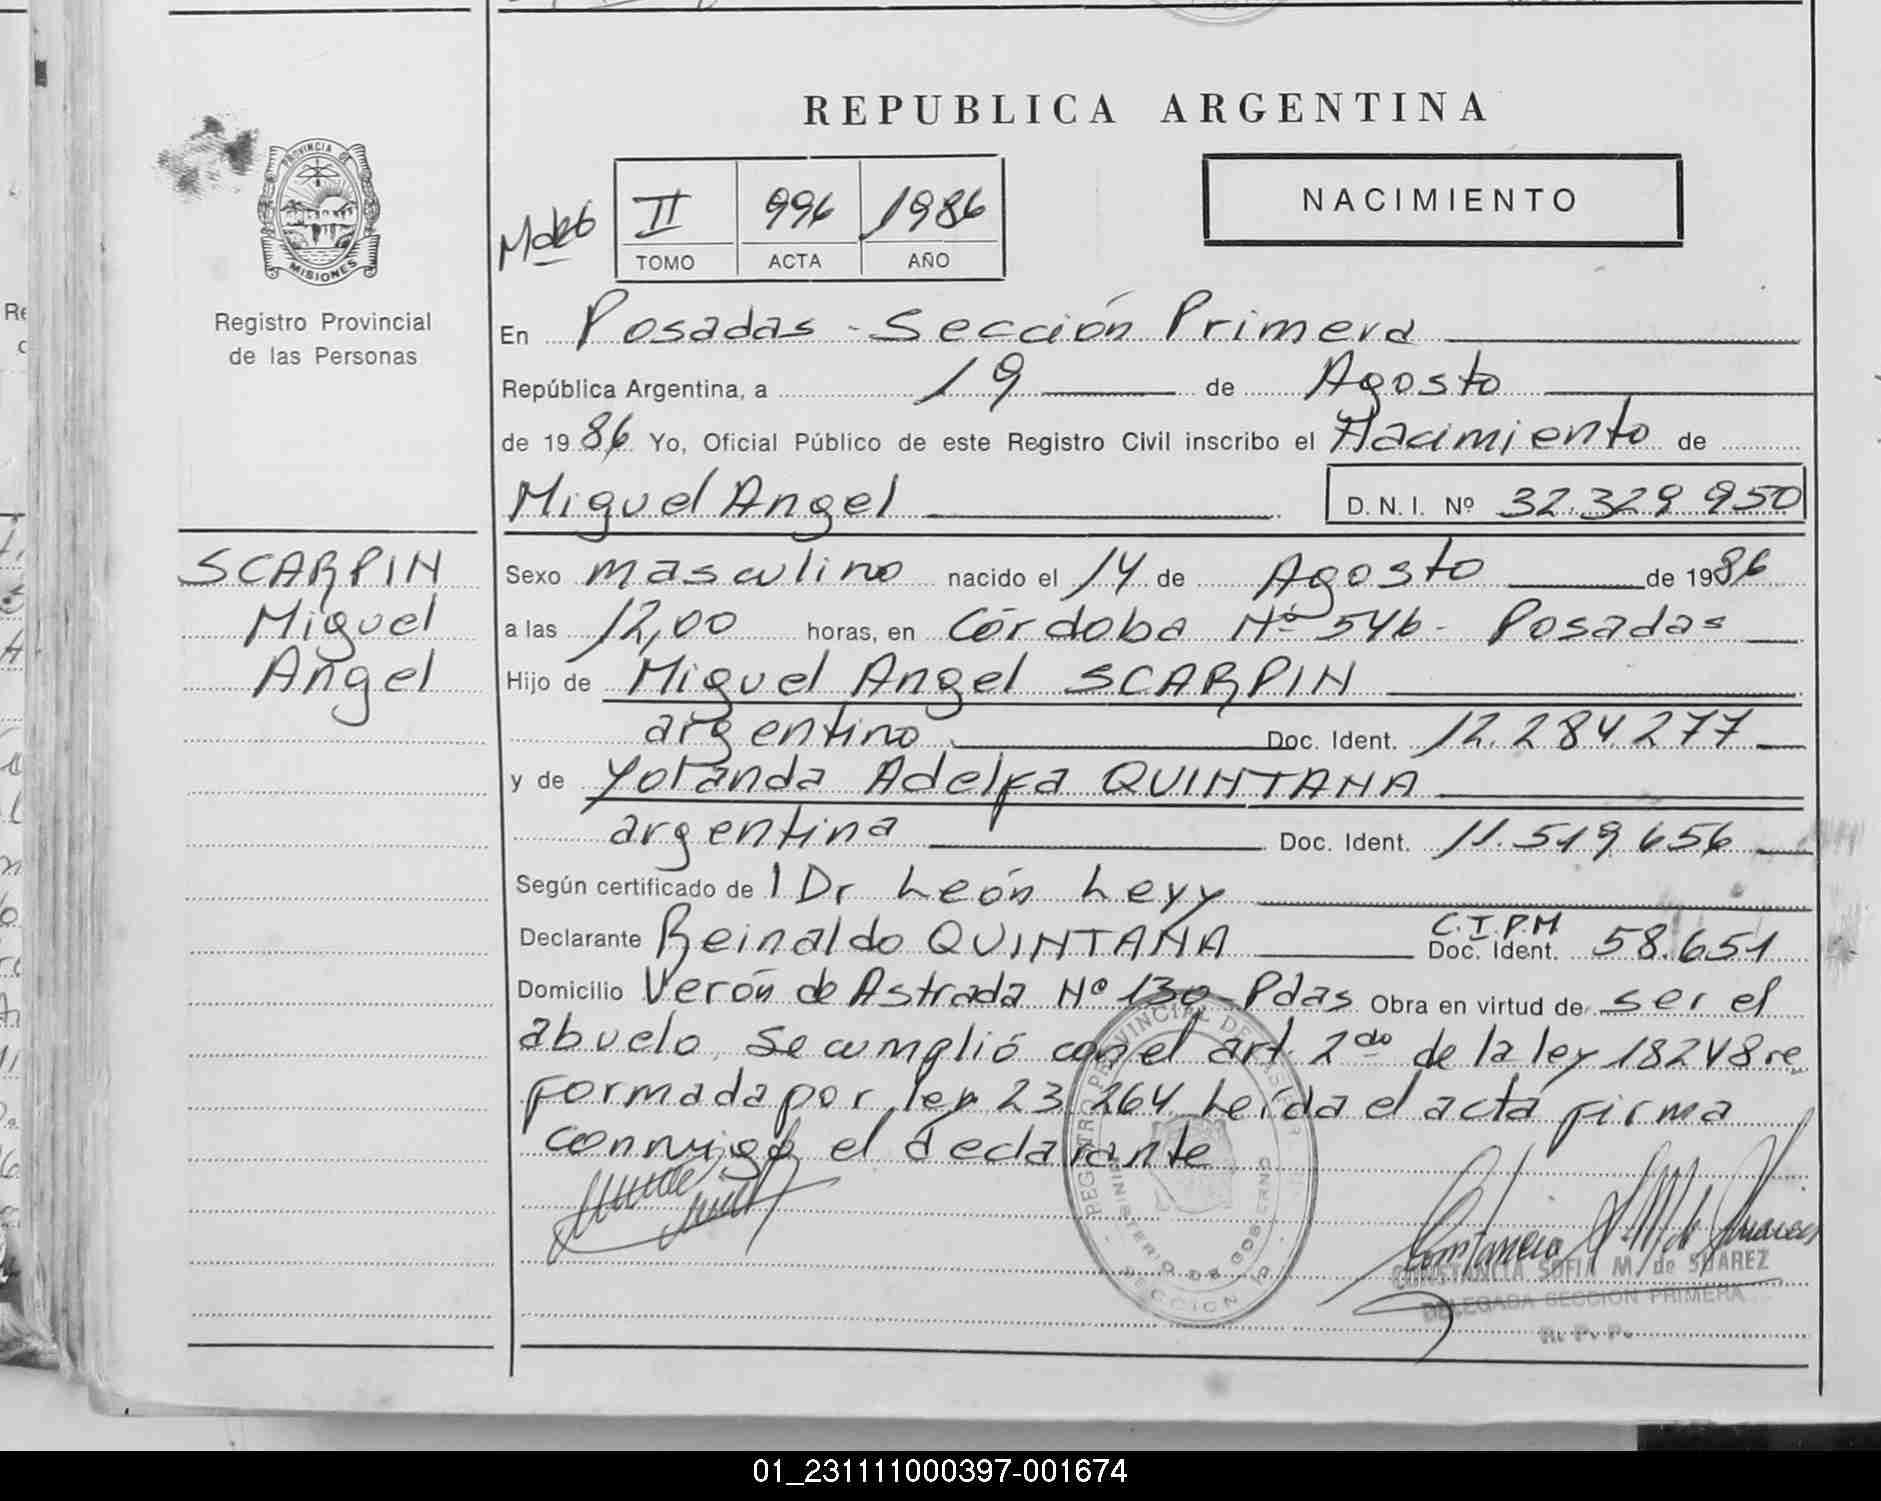 REPUBLICA ARGENTINA
NACIMIENTO
II 996 1986
TOMO ACTA AÑO
PROVINCIA DE
MISIONES
Registro Provincial
de las Personas
En Posadas - Sección Primera
República Argentina, a 19 de Agosto
de 1986 Yo, Oficial Público de este Registro Civil inscribo el Nacimiento de
Miguel Angel D. N. I. Nº 32.329.950
SCARPIN
Miguel
Angel
Sexo masculino nacido el 14 de Agosto de 1986
a las 12,00 horas, en Córdoba Nº 546 - Posadas
Hijo de Miguel Angel SCARPIN
argentino Doc. Ident. 12.284.277
y de Yolanda Adelfa QUINTANA
argentina Doc. Ident. 11.519.656
Según certificado de l Dr León Levy
Declarante Reinaldo QUINTANA C.I.P.M Doc. Ident. 58.651
Domicilio Verón de Astrada Nº 130 - Pdas Obra en virtud de ser el
abuelo. Se cumplió con el art. 2do de la ley 18248 re
formada por ley 23.264 Leída el acta firma
conmigo el declarante
REGISTRO PROVINCIAL DE LAS
MINISTERIO DE GOBIERNO
SECCION
CONSTANCIA SOFIA M. de SUAREZ
DELEGADA SECCION PRIMERA
R. P. P.
01_231111000397-001674